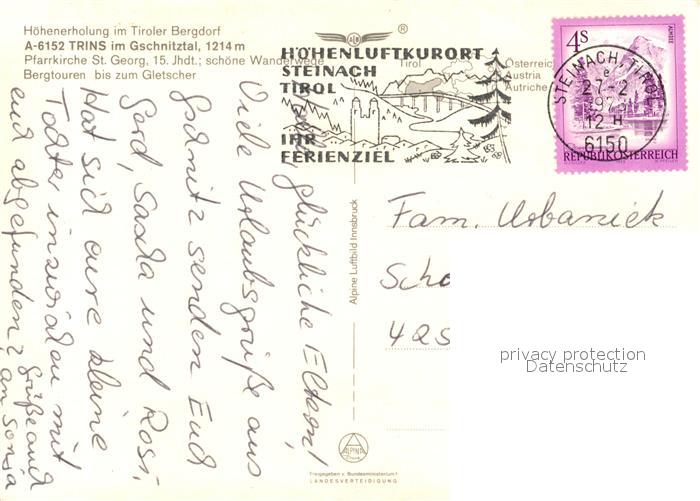 Höhenerholung im Tiroler Bergdorf
A-6152 TRINS im Gschnitztal, 1214 m
Pfarrkirche St. Georg, 15. Jhdt.; schöne Wanderwege
Bergtouren bis zum Gletscher
Tirol
Österreich
Austria
Autriche
®
HÖHENLUFTKURORT
STEINACH
TIROL
IHR
FERIENZIEL
4 S
STEINACH, TIROL
e
27.-2
12 H
6150
REPUBLIK ÖSTERREICH
glückliche Eltern!
Viele Urlaubsgrüße aus
Gschnitz senden Euch
Gerd, Sascha und Rosi.
Hat sich eure kleine
Tochter inzwischen mit
euch abgefunden?
Grüße auch
an Sonja
Alpine Luftbild Innsbruck
ALPINA
Freigegeben v. Bundesministerium f.
LANDESVERTEIDIGUNG
Fam. Urbaniek
Scho
425
privacy protection
Datenschutz